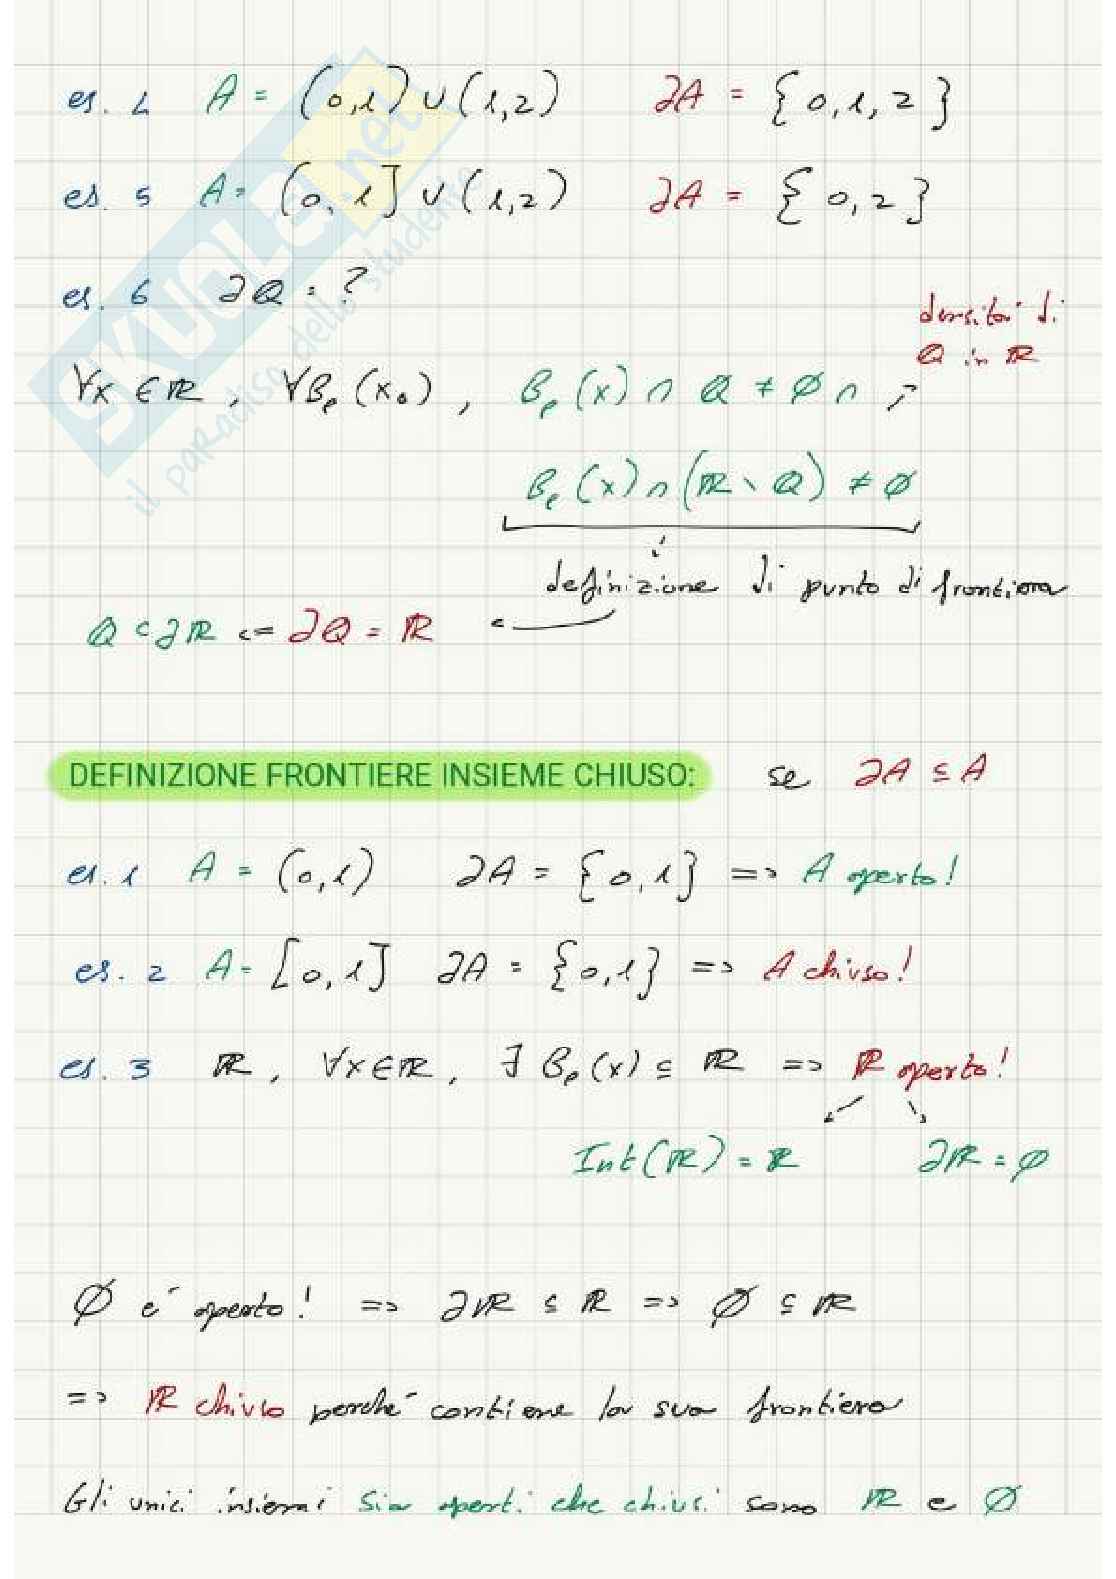 es. 4 A = (0,1) ∪ (1,2) ∂A = {0,1,2}
es. 5 A = (0,1] ∪ (1,2) ∂A = {0,2}
es. 6 ∂Q = ?
densità di
Q in R
∀x ∈ R, ∀B_ρ(x₀), B_ρ(x) ∩ Q ≠ ∅ ∩
B_ρ(x) ∩ (R \ Q) ≠ ∅
definizione di punto di frontiera
Q ⊂ ∂R <= ∂Q = R
DEFINIZIONE FRONTIERE INSIEME CHIUSO: se ∂A ⊆ A
es. 1 A = (0,1) ∂A = {0,1} => A aperto!
es. 2 A = [0,1] ∂A = {0,1} => A chiuso!
es. 3 R, ∀x∈R, ∃ B_ρ(x) ⊆ R => R aperto!
Int(R) = R ∂R = ∅
∅ è aperto! => ∂R ⊆ R => ∅ ⊆ R
=> R chiuso perché contiene la sua frontiera
Gli unici insiemi sia aperti che chiusi sono R e ∅
SKUOLA.net
il paradiso dello studente